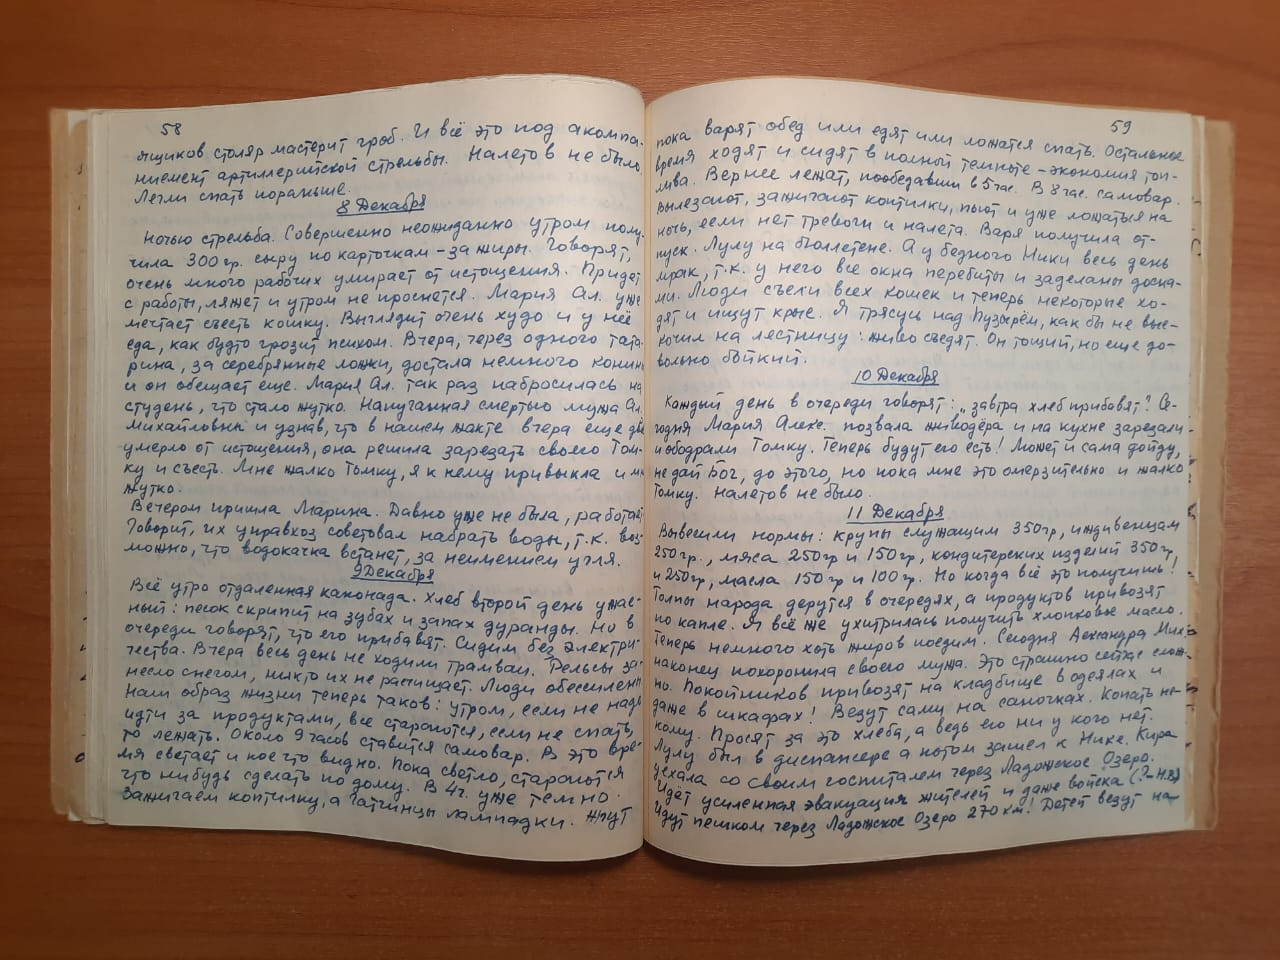 58
ящиков столяр мастерит гроб. И всё это под акомпа-
нием��нт артиллерийской стрельбы. Налетов не было.
Легли спать пораньше.
8 Декабря
Ночью стрельба. Совершенно неожиданно утром полу-
чила 300 гр. сыру по карточкам – за жиры. Говорят,
очень много рабочих умирает от истощения. Придет
с работы, ляжет и утром не проснется. Мария Ал. уже
мечтает съесть кошку. Выглядит очень худо и у неё
еда, как будто грозит психом. Вчера, через одного тата-
рина, за серебрянные ложки, достала немного конины
и он обещает еще. Мария Ал. так раз набросилась на
студень, что стало жутко. Напуганная смертью мужа Ал.
Михайловны и узнав, что в нашем жакте вчера еще двое
умерло от истощения, она решила зарезать своего Том-
ку и съесть. Мне жалко Томку, я к нему привыкла и мне
жутко.
Вечером пришла Марина. Давно уже не была, работает.
Говорит, их управхоз советовал набрать воды, т.к. воз-
можно, что водокачка встанет, за неимением угля.
9 Декабря
Всё утро отдаленная канонада. Хлеб второй день ужас-
ный: песок скрипит на зубах и запах дуранды. Но в
очереди говорят, что его прибавят. Сидим без электри-
чества. Вчера весь день не ходили трамваи. Рельсы за-
несло снегом, никто их не расчищает. Люди обессилены
Наш образ жизни теперь таков: утром, если не надо
идти за продуктами, все стараются, если не спать,
то лежать. Около 9 часов ставится самовар. В это вре-
мя светает и кое что видно. Пока светло, стараются
что нибудь сделать по дому. В 4 ч. уже темно.
Зажигаем коптилку, а Гатчинцы лампадки. Жгут
59
пока варят обед или едят или ложатся спать. Остальное
время ходят и сидят в полной темноте – экономия топ-
лива. Вернее лежат, пообедавши в 5 час. В 8 час. самовар.
Вылезают, зажигают коптилки, пьют и уже ложаться на
ночь, если нет тревоги и налета. Варя получила от-
пуск. Лулу на бюллетене. А у бедного Ники весь день
мрак, т.к. у него все окна перебиты и заделаны доска-
ми. Люди съели всех кошек и теперь некоторые хо-
дят и ищут крыс. Я трясусь над Пузырём, как бы не выс-
кочил на лестницу: живо съедят. Он тощий, но еще до-
вольно бойкий.
10 Декабря
Каждый день в очереди говорят: „завтра хлеб прибавят". Се-
годня Мария Алекс. позвала живодёра и на кухне зарезали
и ободрали Томку. Теперь будут его есть! Может и сама дойду,
не дай Бог, до этого, но пока мне это омерзительно и жалко
Томку. Налетов не было.
11 Декабря
Вывесили нормы: крупы служащим 350 гр, иждивенцам
250 гр., мяса 250 гр и 150 гр, кондитерских изделий 350 гр,
и 250 гр, масла 150 гр и 100 гр. Но когда всё это получишь!
Толпы народа дерутся в очередях, а продуктов привозят
по капле. Я всё же ухитрилась получить хлопковое масло.
Теперь немного хоть жиров поедим. Сегодня Александра Мих.
наконец похоронила своего мужа. Это страшно сейчас слож-
но. Покойников привозят на кладбище в одеялах и
даже в шкафах! Везут сами на саночках. Копать не-
кому. Просят за это хлеба, а ведь его ни у кого нет.
Лулу был в диспансере а потом зашел к Нике. Кира
уехала со своим госпиталем через Ладожское Озеро.
Идёт усиленная эвакуация жителей и даже войска
Идут пешком через Ладожское Озеро 270 км! Детей везут на